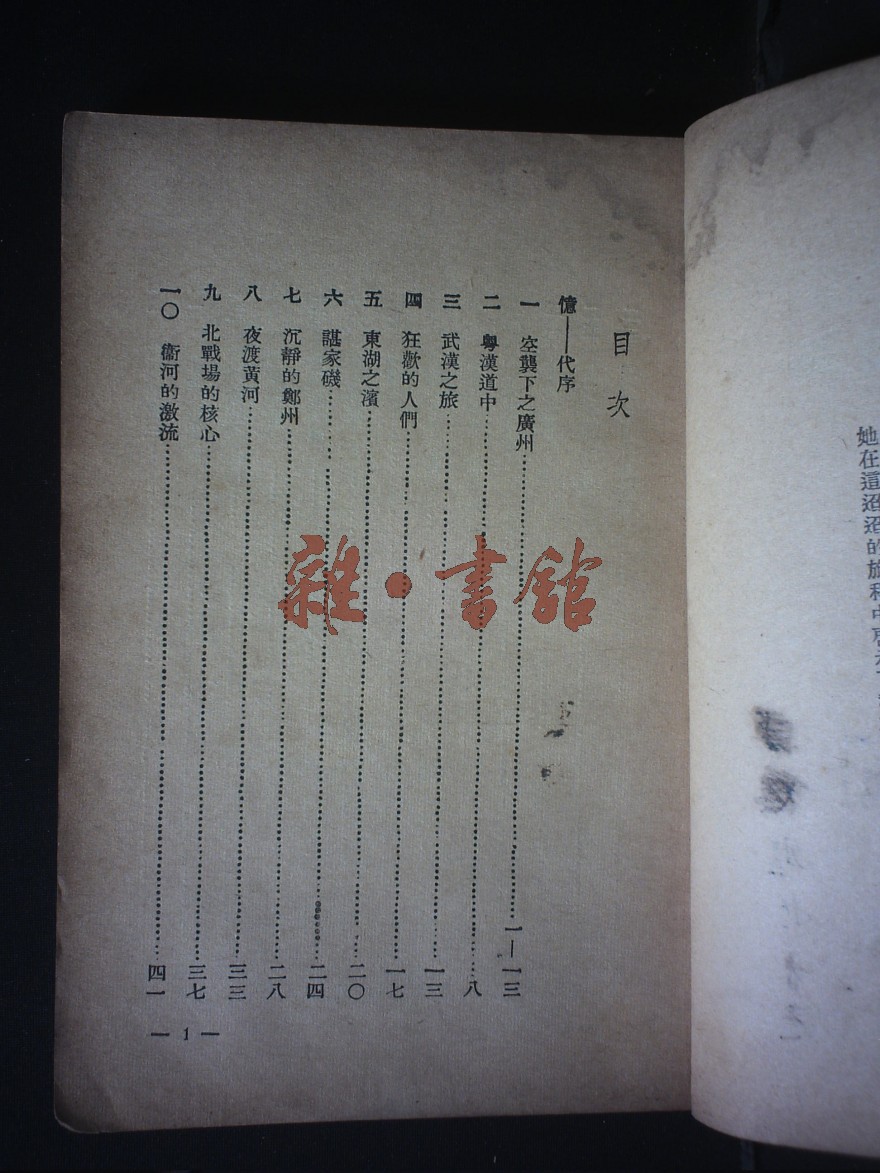 她在這迢迢的旅程中
目次
憶——代序
一 空襲下之廣州……一—一三
二 粵漢道中……八
三 武漢之旅……一三
四 狂歡的人們……一七
五 東湖之濱……二〇
六 諶家磯……二四
七 沉靜的鄭州……二八
八 夜渡黃河……三三
九 北戰場的核心……三七
一〇 衞河的激流……四一
— 1 —
雜·書館